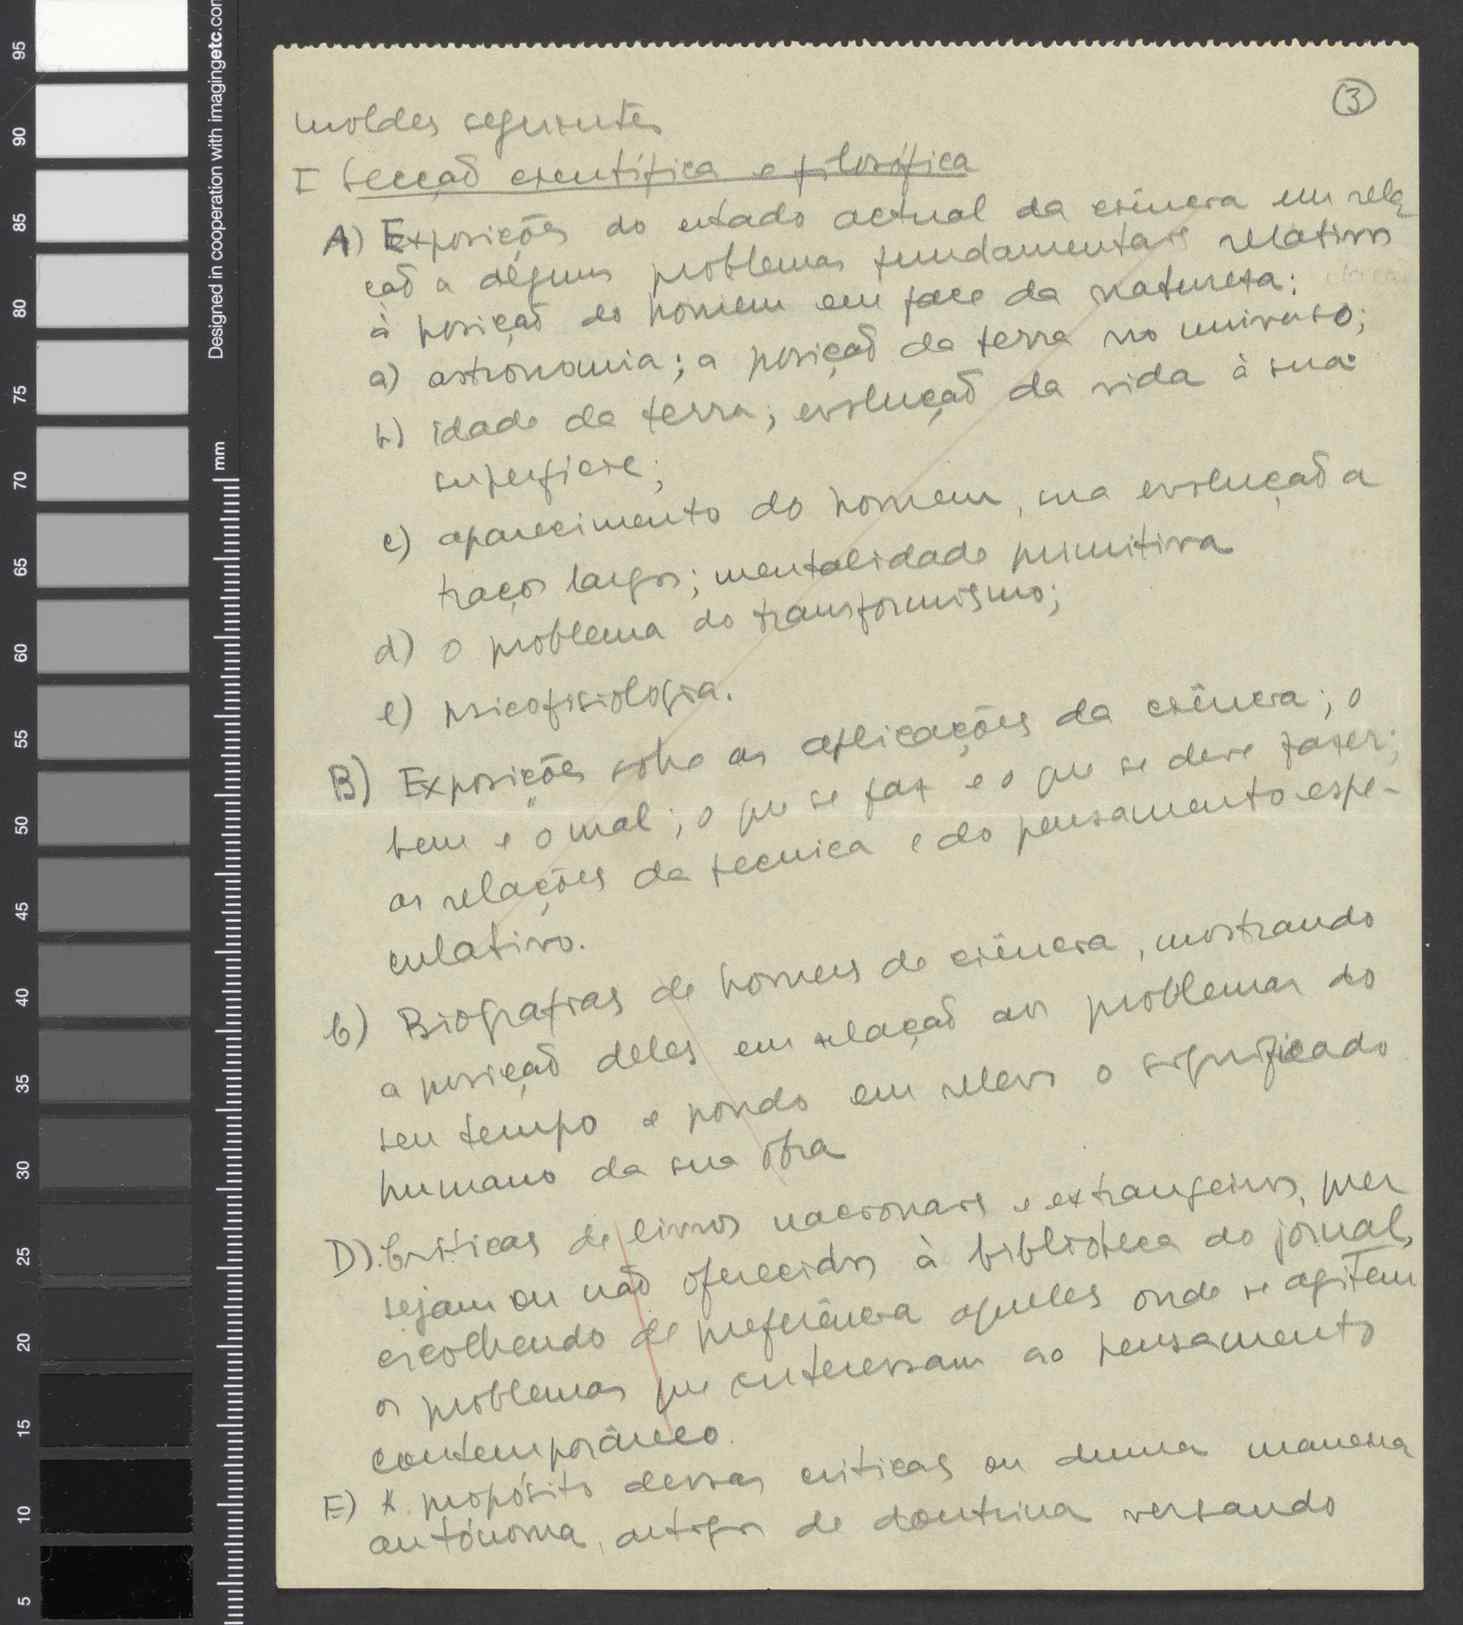 3
moldes seguintes
I Secção científica e filosófica
A) Exposições do estado actual da ciência em rela-
ção a alguns problemas fundamentais relativos
à posição do homem em face da natureza:
a) astronomia; a posição da terra no universo;
b) idade da terra; evolução da vida à sua
superfície;
c) aparecimento do homem, sua evolução a
traços largos; mentalidade primitiva
d) o problema do transformismo;
e) psicofisiologia.
B) Exposições sobre as aplicações da ciência; o
bem e o mal; o que se faz e o que se deve fazer;
as relações da tecnica e do pensamento espe-
culativo.
C) Biografias de homens de ciência, mostrando
a posição deles em relação aos problemas do
seu tempo e pondo em relevo o significado
humano da sua obra
D) Críticas de livros nacionais e extrangeiros, quer
sejam ou não oferecidos à biblioteca do jornal,
escolhendo de preferência aqueles onde se agitem
os problemas que interessam ao pensamento
contemporâneo.
E) A propósito dessas criticas ou duma maneira
autónoma, artigos de doutrina versando
Designed in cooperation with imagingetc.com
mm
95
90
85
80
75
70
65
60
55
50
45
40
35
30
25
20
15
10
5